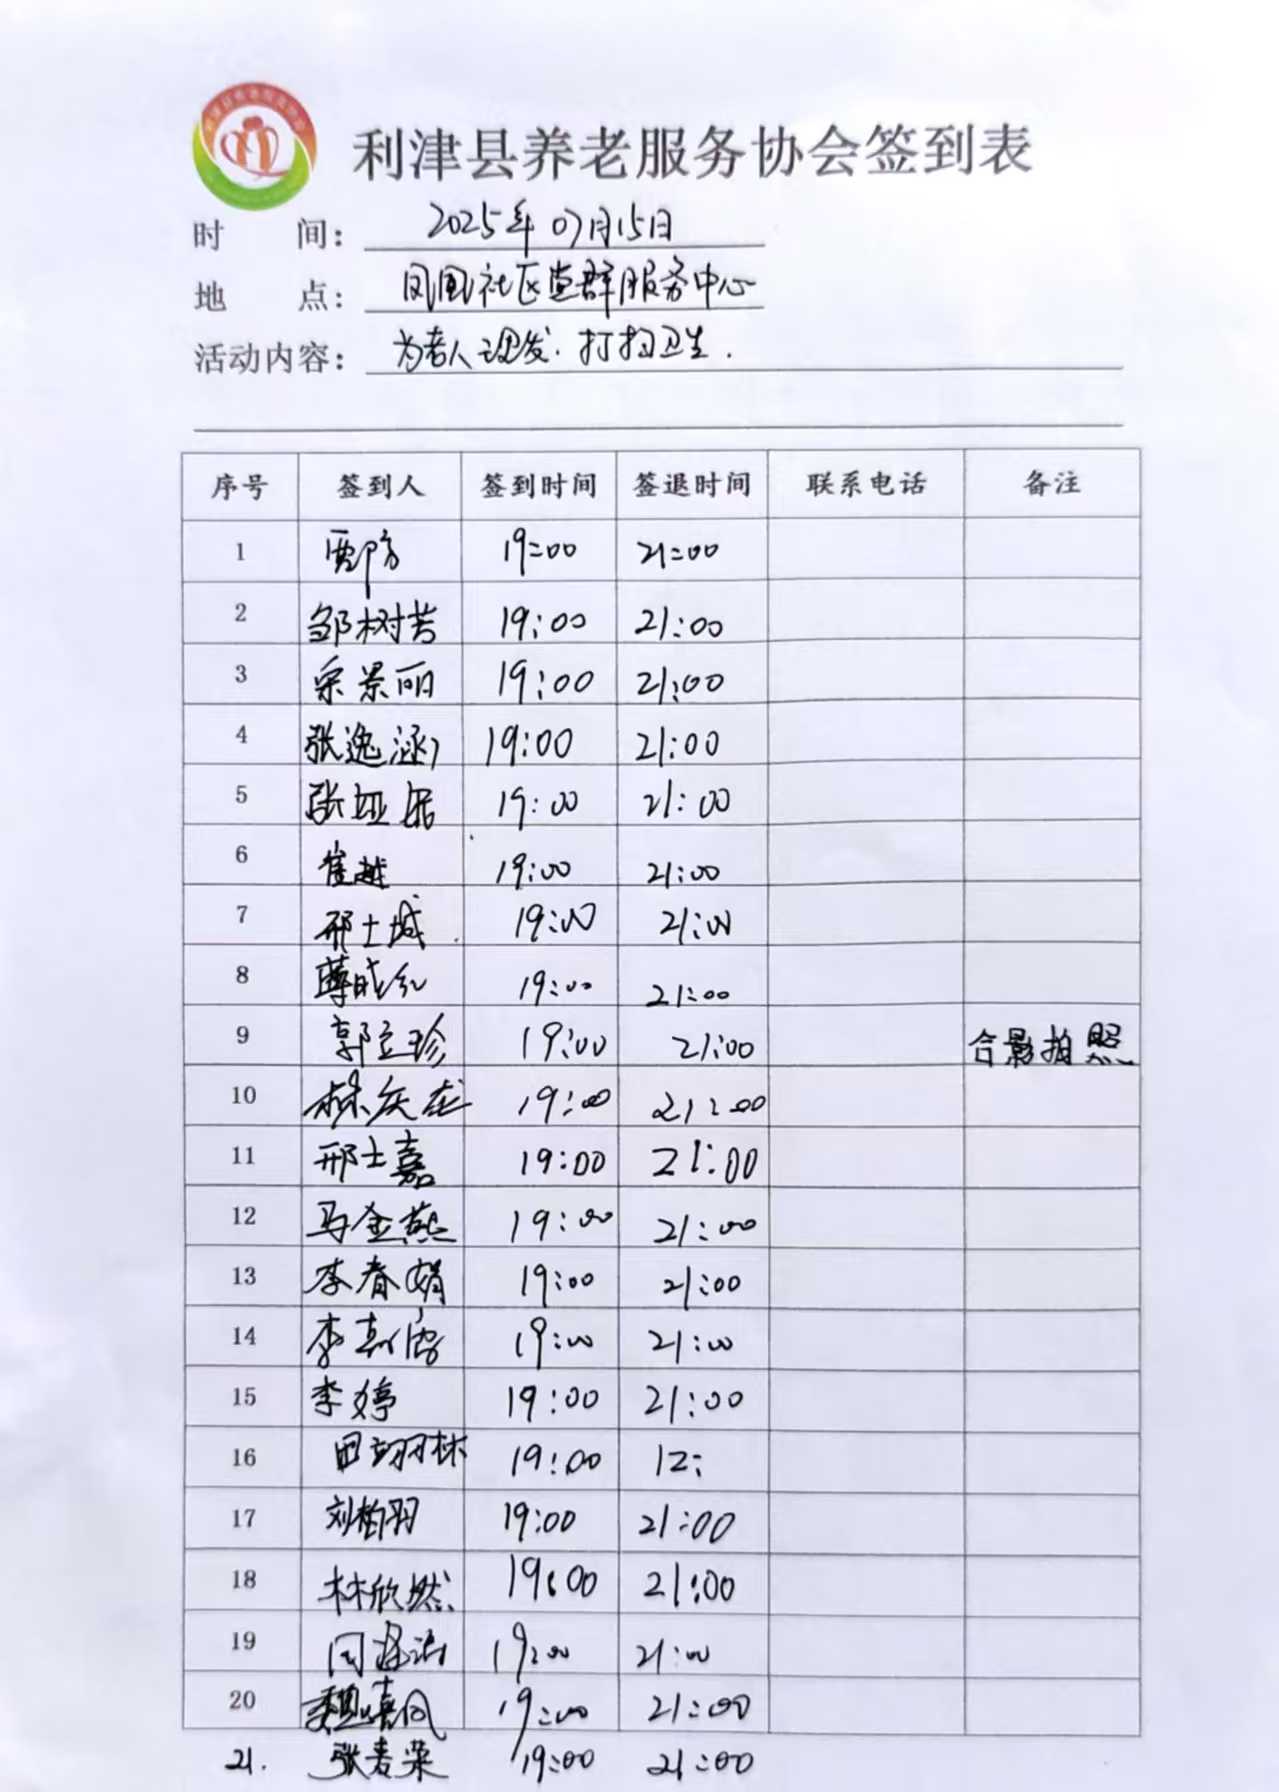 利津县养老服务协会签到表
时 间: 2025年07月15日
地 点: 凤凰社区党群服务中心
活动内容: 为老人理发. 打扫卫生.
序号 签到人 签到时间 签退时间 联系电话 备注
1 19:00 21:00
2 邹树芳 19:00 21:00
3 宋景丽 19:00 21:00
4 张逸涵 19:00 21:00
5 张 19:00 21:00
6 崔越 19:00 21:00
7 邢士城 19:00 21:00
8 薄晓红 19:00 21:00
9 郭立珍 19:00 21:00 合影拍照
10 林庆龙 19:00 21:00
11 邢士嘉 19:00 21:00
12 马金燕 19:00 21:00
13 李春娟 19:00 21:00
14 李 19:00 21:00
15 李婷 19:00 21:00
16 田翊林 19:00 12:
17 刘柏羽 19:00 21:00
18 林欣燃 19:00 21:00
19 19:00 21:00
20 魏嘉风 19:00 21:00
21. 张麦荣 19:00 21:00